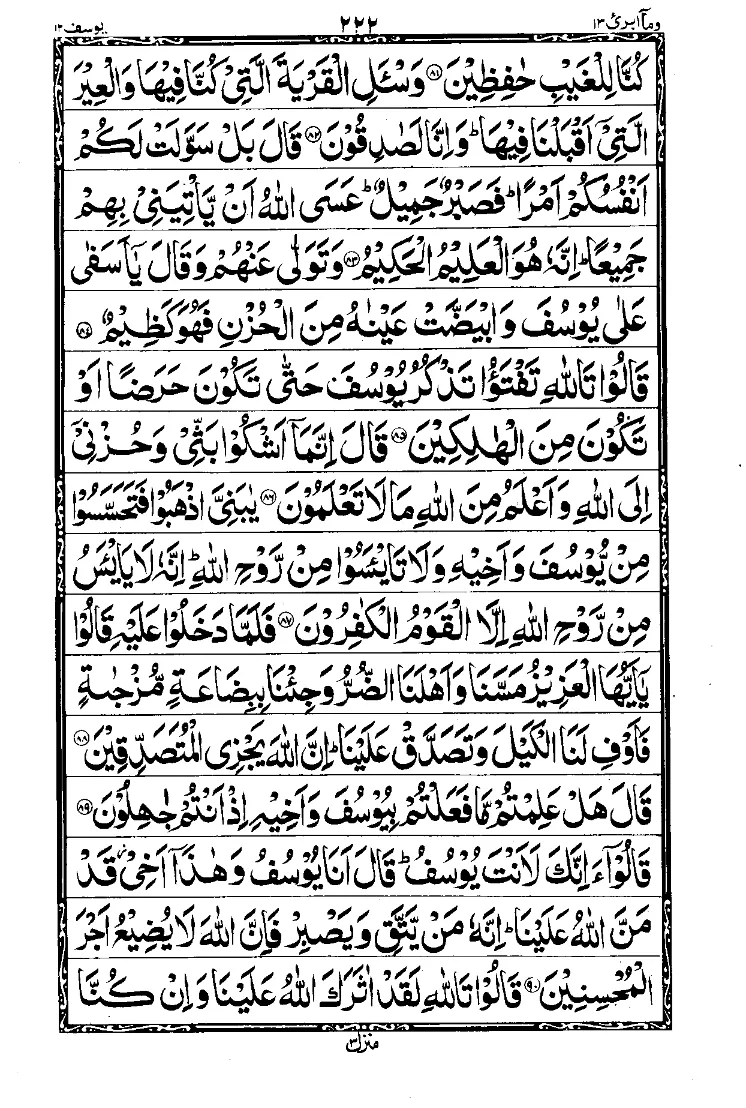 یوسف ۱۲ ۲۲۲ ومآ ابرئ ۱۳
كُنَّا لِلْغَيْبِ حٰفِظِيْنَ ﴿۸۱﴾ وَسْئَلِ الْقَرْيَةَ الَّتِيْ كُنَّا فِيْهَا وَالْعِيْرَ
الَّتِيْٓ اَقْبَلْنَا فِيْهَا ؕ وَاِنَّا لَصٰدِقُوْنَ ﴿۸۲﴾ قَالَ بَلْ سَوَّلَتْ لَكُمْ
اَنْفُسُكُمْ اَمْرًا ؕ فَصَبْرٌ جَمِيْلٌ ؕ عَسَى اللّٰهُ اَنْ يَّاْتِيَنِيْ بِهِمْ
جَمِيْعًا ؕ اِنَّهٗ هُوَ الْعَلِيْمُ الْحَكِيْمُ ﴿۸۳﴾ وَتَوَلّٰى عَنْهُمْ وَقَالَ يٰٓاَسَفٰى
عَلٰى يُوْسُفَ وَابْيَضَّتْ عَيْنٰهُ مِنَ الْحُزْنِ فَهُوَ كَظِيْمٌ ﴿۸۴﴾
قَالُوْا تَاللّٰهِ تَفْتَؤُا تَذْكُرُ يُوْسُفَ حَتّٰى تَكُوْنَ حَرَضًا اَوْ
تَكُوْنَ مِنَ الْهٰلِكِيْنَ ﴿۸۵﴾ قَالَ اِنَّمَآ اَشْكُوْا بَثِّيْ وَحُزْنِيْٓ
اِلَى اللّٰهِ وَاَعْلَمُ مِنَ اللّٰهِ مَا لَا تَعْلَمُوْنَ ﴿۸۶﴾ يٰبَنِيَّ اذْهَبُوْا فَتَحَسَّسُوْا
مِنْ يُّوْسُفَ وَاَخِيْهِ وَلَا تَايْئَسُوْا مِنْ رَّوْحِ اللّٰهِ ؕ اِنَّهٗ لَا يَايْئَسُ
مِنْ رَّوْحِ اللّٰهِ اِلَّا الْقَوْمُ الْكٰفِرُوْنَ ﴿۸۷﴾ فَلَمَّا دَخَلُوْا عَلَيْهِ قَالُوْا
يٰٓاَيُّهَا الْعَزِيْزُ مَسَّنَا وَاَهْلَنَا الضُّرُّ وَجِئْنَا بِبِضَاعَةٍ مُّزْجٰىةٍ
فَاَوْفِ لَنَا الْكَيْلَ وَتَصَدَّقْ عَلَيْنَا ؕ اِنَّ اللّٰهَ يَجْزِي الْمُتَصَدِّقِيْنَ ﴿۹۸﴾
قَالَ هَلْ عَلِمْتُمْ مَّا فَعَلْتُمْ بِيُوْسُفَ وَاَخِيْهِ اِذْ اَنْتُمْ جٰهِلُوْنَ ﴿۸۹﴾
قَالُوْٓا ءَاِنَّكَ لَاَنْتَ يُوْسُفُ ؕ قَالَ اَنَا يُوْسُفُ وَهٰذَآ اَخِيْ ؗ قَدْ
مَنَّ اللّٰهُ عَلَيْنَا ؕ اِنَّهٗ مَنْ يَّتَّقِ وَيَصْبِرْ فَاِنَّ اللّٰهَ لَا يُضِيْعُ اَجْرَ
الْمُحْسِنِيْنَ ﴿۹۰﴾ قَالُوْا تَاللّٰهِ لَقَدْ اٰثَرَكَ اللّٰهُ عَلَيْنَا وَاِنْ كُنَّا
منزل ۳